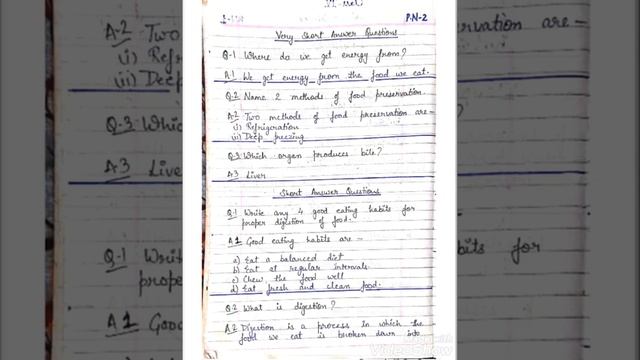 P.N-2
Very Short Answer Questions
Q.1 Where do we get energy from?
A.1 We get energy from the food we eat.
Q.2 Name 2 methods of food preservation.
A.2 Two methods of food preservation are—
i) Refrigeration
ii) Deep freezing
Q.3 Which organ produces bile?
A.3 Liver
Short Answer Questions
Q.1 Write any 4 good eating habits for
proper digestion of food.
A.1 Good eating habits are —
a) Eat a balanced diet
b) Eat at regular intervals
c) Chew the food well
d) Eat fresh and clean food.
Q.2 What is digestion?
A.2 Digestion is a process in which the
food we eat is broken down into